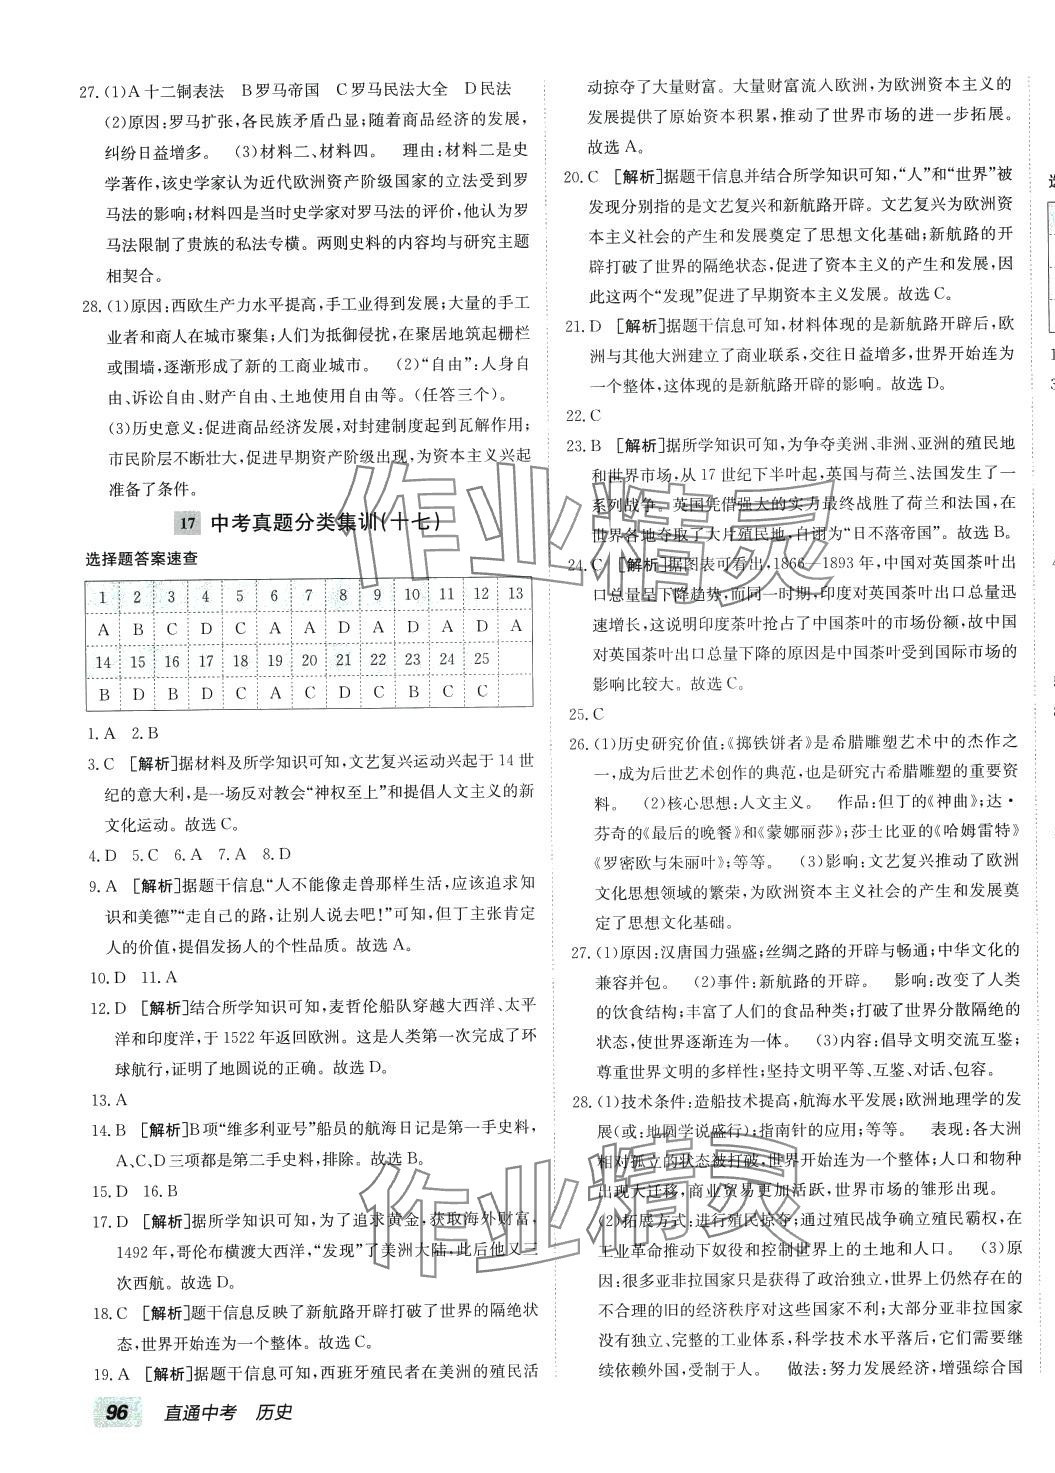 27. (1)A 十二铜表法　B罗马帝国　C罗马民法大全　D民法
(2)原因:罗马扩张,各民族矛盾凸显;随着商品经济的发展,
纠纷日益增多。　(3)材料二、材料四。　理由:材料二是史
学著作,该史学家认为近代欧洲资产阶级国家的立法受到罗
马法的影响;材料四是当时史学家对罗马法的评价,他认为罗
马法限制了贵族的私法专横。两则史料的内容均与研究主题
相契合。
28. (1)原因:西欧生产力水平提高,手工业得到发展;大量的手工
业者和商人在城市聚集;人们为抵御侵扰,在聚居地筑起栅栏
或围墙,逐渐形成了新的工商业城市。　(2)“自由”:人身自
由、诉讼自由、财产自由、土地使用自由等。(任答三个)。
(3)历史意义:促进商品经济发展,对封建制度起到瓦解作用;
市民阶层不断壮大,促进早期资产阶级出现,为资本主义兴起
准备了条件。
17 中考真题分类集训(十七)
选择题答案速查
1 2 3 4 5 6 7 8 9 10 11 12 13
A B C D C A A D A D A D A
14 15 16 17 18 19 20 21 22 23 24 25
B D B D C A C D C B C C
1. A　2. B
3. C　[解析]据材料及所学知识可知,文艺复兴运动兴起于 14 世
纪的意大利,是一场反对教会“神权至上”和提倡人文主义的新
文化运动。故选 C。
4. D　5. C　6. A　7. A　8. D
9. A　[解析]据题干信息“人不能像走兽那样生活,应该追求知
识和美德”“走自己的路,让别人说去吧!”可知,但丁主张肯定
人的价值,提倡发扬人的个性品质。故选 A。
10. D　11. A
12. D　[解析]结合所学知识可知,麦哲伦船队穿越大西洋、太平
洋和印度洋,于 1522 年返回欧洲。这是人类第一次完成了环
球航行,证明了地圆说的正确。故选 D。
13. A
14. B　[解析]B 项“维多利亚号”船员的航海日记是第一手史料,
A、C、D 三项都是第二手史料,排除。故选 B。
15. D　16. B
17. D　[解析]据所学知识可知,为了追求黄金,获取海外财富,
1492 年,哥伦布横渡大西洋,“发现”了美洲大陆,此后他又三
次西航。故选 D。
18. C　[解析]题干信息反映了新航路开辟打破了世界的隔绝状
态,世界开始连为一个整体。故选 C。
19. A　[解析]据题干信息可知,西班牙殖民者在美洲的殖民活
动掠夺了大量财富。大量财富流入欧洲,为欧洲资本主义的
发展提供了原始资本积累,推动了世界市场的进一步拓展。
故选 A。
20. C　[解析]据题干信息并结合所学知识可知,“人”和“世界”被
发现分别指的是文艺复兴和新航路开辟。文艺复兴为欧洲资
本主义社会的产生和发展奠定了思想文化基础;新航路的开
辟打破了世界的隔绝状态,促进了资本主义的产生和发展,因
此这两个“发现”促进了早期资本主义发展。故选 C。
21. D　[解析]据题干信息可知,材料体现的是新航路开辟后,欧
洲与其他大洲建立了商业联系,交往日益增多,世界开始连为
一个整体,这体现的是新航路开辟的影响。故选 D。
22. C
23. B　[解析]据所学知识可知,为争夺美洲、非洲、亚洲的殖民地
和世界市场,从 17 世纪下半叶起,英国与荷兰、法国发生了一
系列战争。英国凭借强大的实力最终战胜了荷兰和法国,在
世界各地夺取了大片殖民地,自诩为“日不落帝国”。故选 B。
24. C　[解析]据图表可看出,1866—1893 年,中国对英国茶叶出
口总量呈下降趋势,而同一时期,印度对英国茶叶出口总量迅
速增长,这说明印度茶叶抢占了中国茶叶的市场份额,故中国
对英国茶叶出口总量下降的原因是中国茶叶受到国际市场的
影响比较大。故选 C。
25. C
26. (1)历史研究价值:《掷铁饼者》是希腊雕塑艺术中的杰作之
一,成为后世艺术创作的典范,也是研究古希腊雕塑的重要资
料。　(2)核心思想:人文主义。　作品:但丁的《神曲》;达·
芬奇的《最后的晚餐》和《蒙娜丽莎》;莎士比亚的《哈姆雷特》
《罗密欧与朱丽叶》;等等。　(3)影响:文艺复兴推动了欧洲
文化思想领域的繁荣,为欧洲资本主义社会的产生和发展奠
定了思想文化基础。
27. (1)原因:汉唐国力强盛;丝绸之路的开辟与畅通;中华文化的
兼容并包。　(2)事件:新航路的开辟。　影响:改变了人类
的饮食结构;丰富了人们的食品种类;打破了世界分散隔绝的
状态,使世界逐渐连为一体。　(3)内容:倡导文明交流互鉴;
尊重世界文明的多样性;坚持文明平等、互鉴、对话、包容。
28. (1)技术条件:造船技术提高,航海水平发展;欧洲地理学的发
展(或:地圆学说盛行);指南针的应用;等等。　表现:各大洲
相对孤立的状态被打破,世界开始连为一个整体;人口和物种
出现大迁移,商业贸易更加活跃,世界市场的雏形出现。
(2)拓展方式:进行殖民掠夺;通过殖民战争确立殖民霸权,在
工业革命推动下奴役和控制世界上的土地和人口。　(3)原
因:很多亚非拉国家只是获得了政治独立,世界上仍然存在的
不合理的旧的经济秩序对这些国家不利;大部分亚非拉国家
没有独立、完整的工业体系,科学技术水平落后,它们需要继
续依赖外国,受制于人。　做法:努力发展经济,增强综合国
96　直通中考　历史
作业精灵
作业精灵